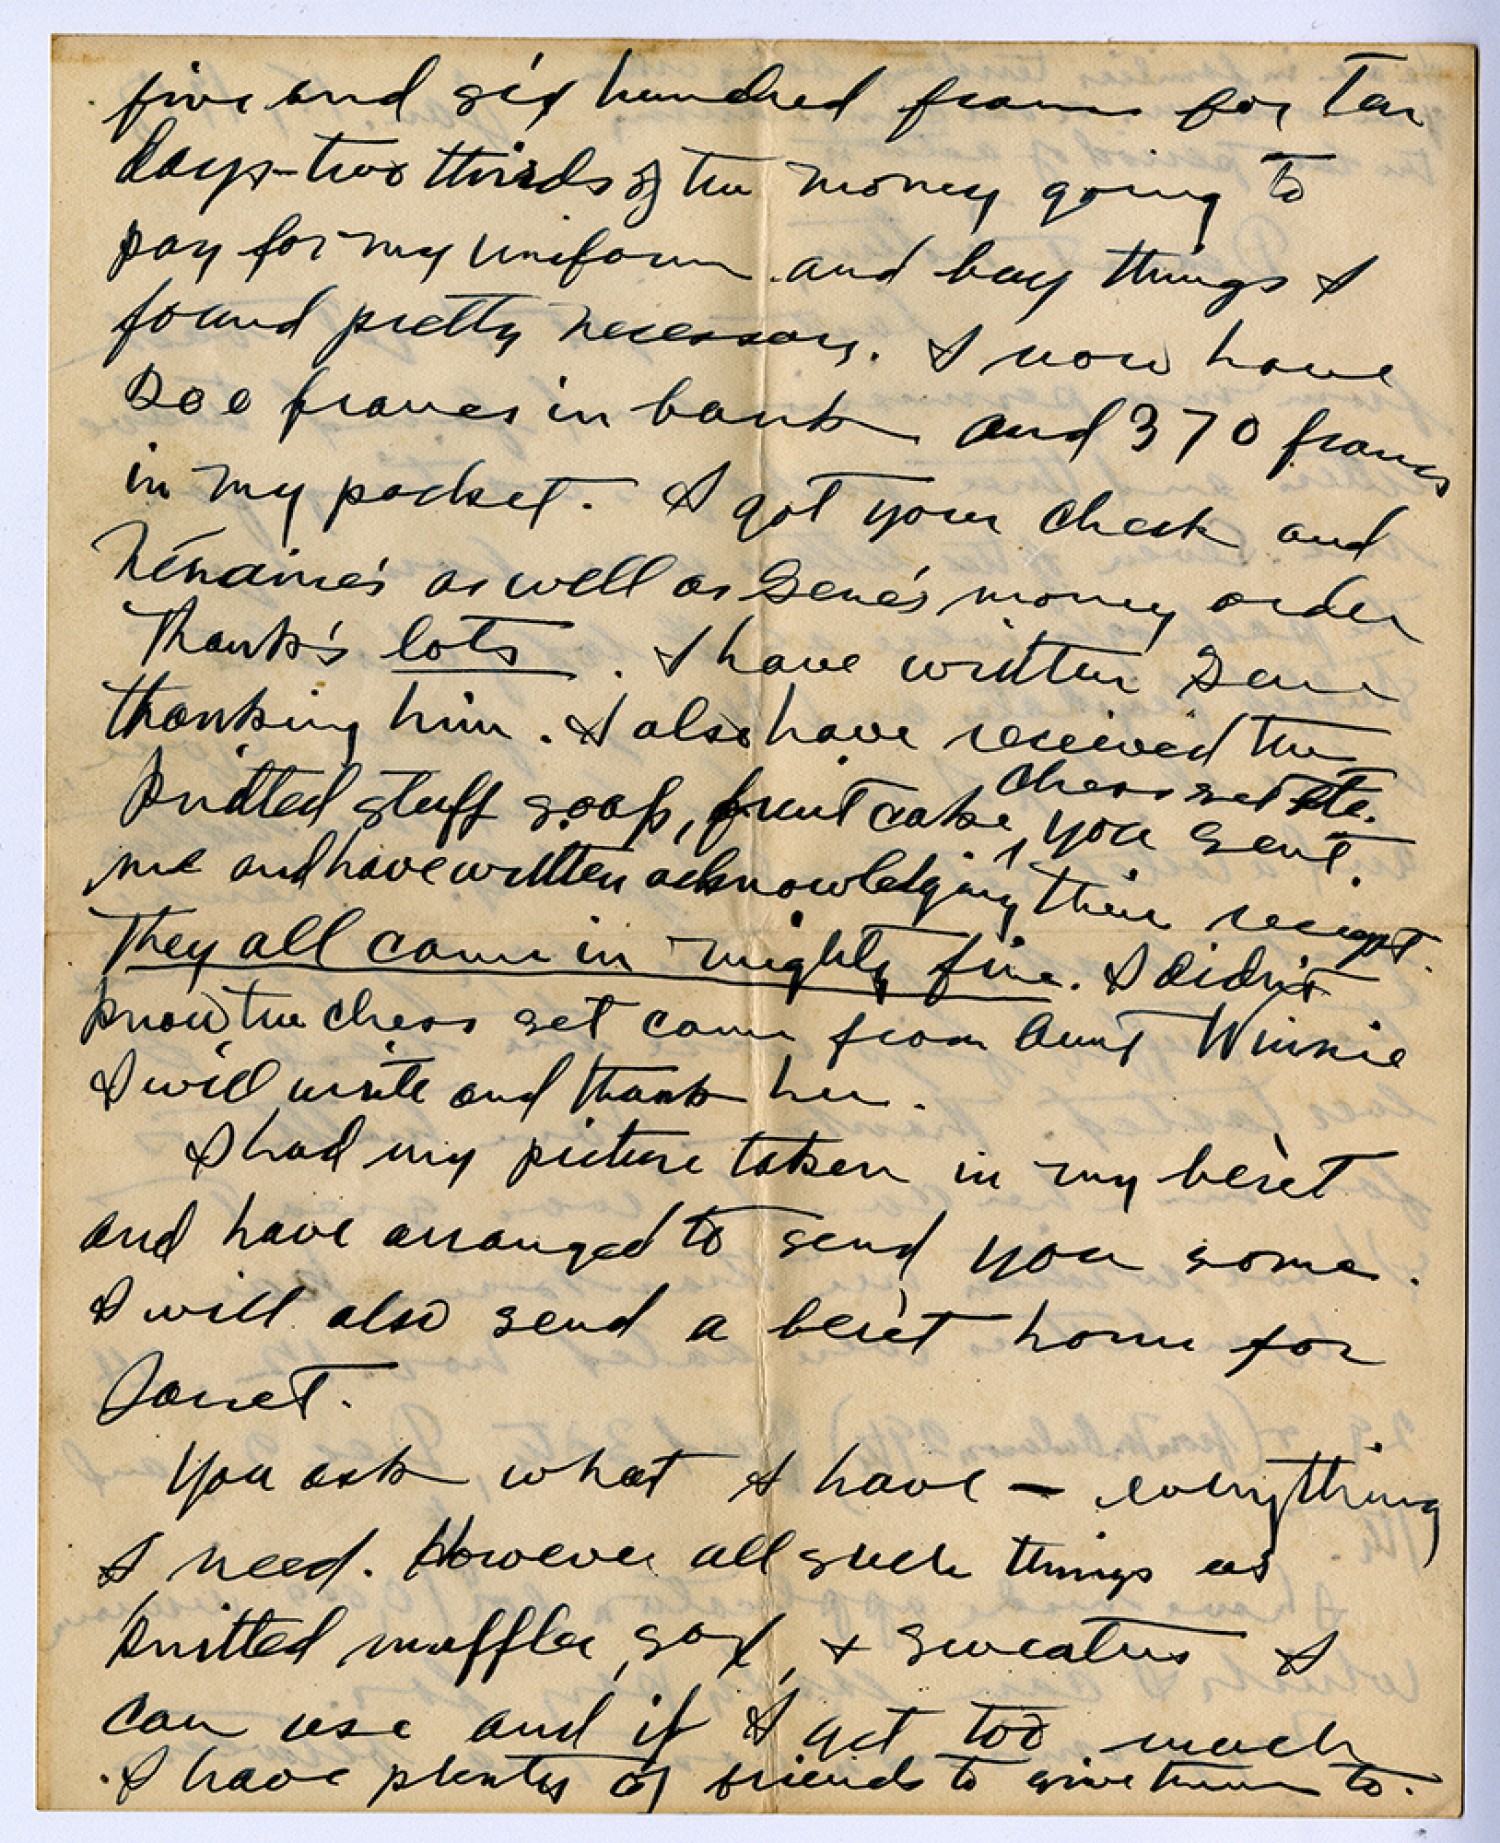 five and six hundred francs for Ten
days - two thirds of the money going to
pay for my uniform and buy things I
found pretty necessary. I now have
francs in bank and 370 francs
in my pocket. I got your check and
as well as Gene's money order
Thank's lots. I have written Gene
thanking him. I also have received the
knitted stuff soap, fruit cake, chess set etc. you sent
me and have written acknowledging their receipt.
They all came in mighty fine. I didn't
know the chess set came from Aunt Winnie
I will write and thank her.
I had my picture taken in my berèt
and have arranged to send you some.
I will also send a berèt home for
Janet.
You ask what I have — everything
I need. However all such things as
knitted muffler, sox, + sweaters I
can use and if I get too much
I have plenty of friends to give them to.